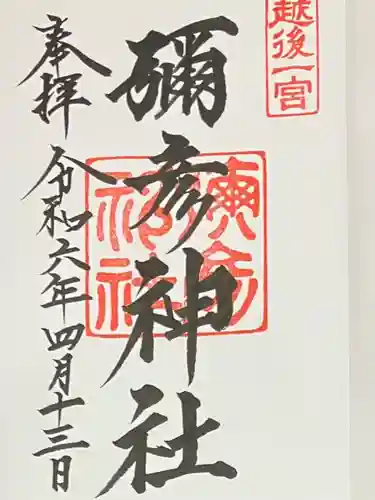 越後一宮
彌彦神社
奉拝
令和六年四月十三日
彌彦神社